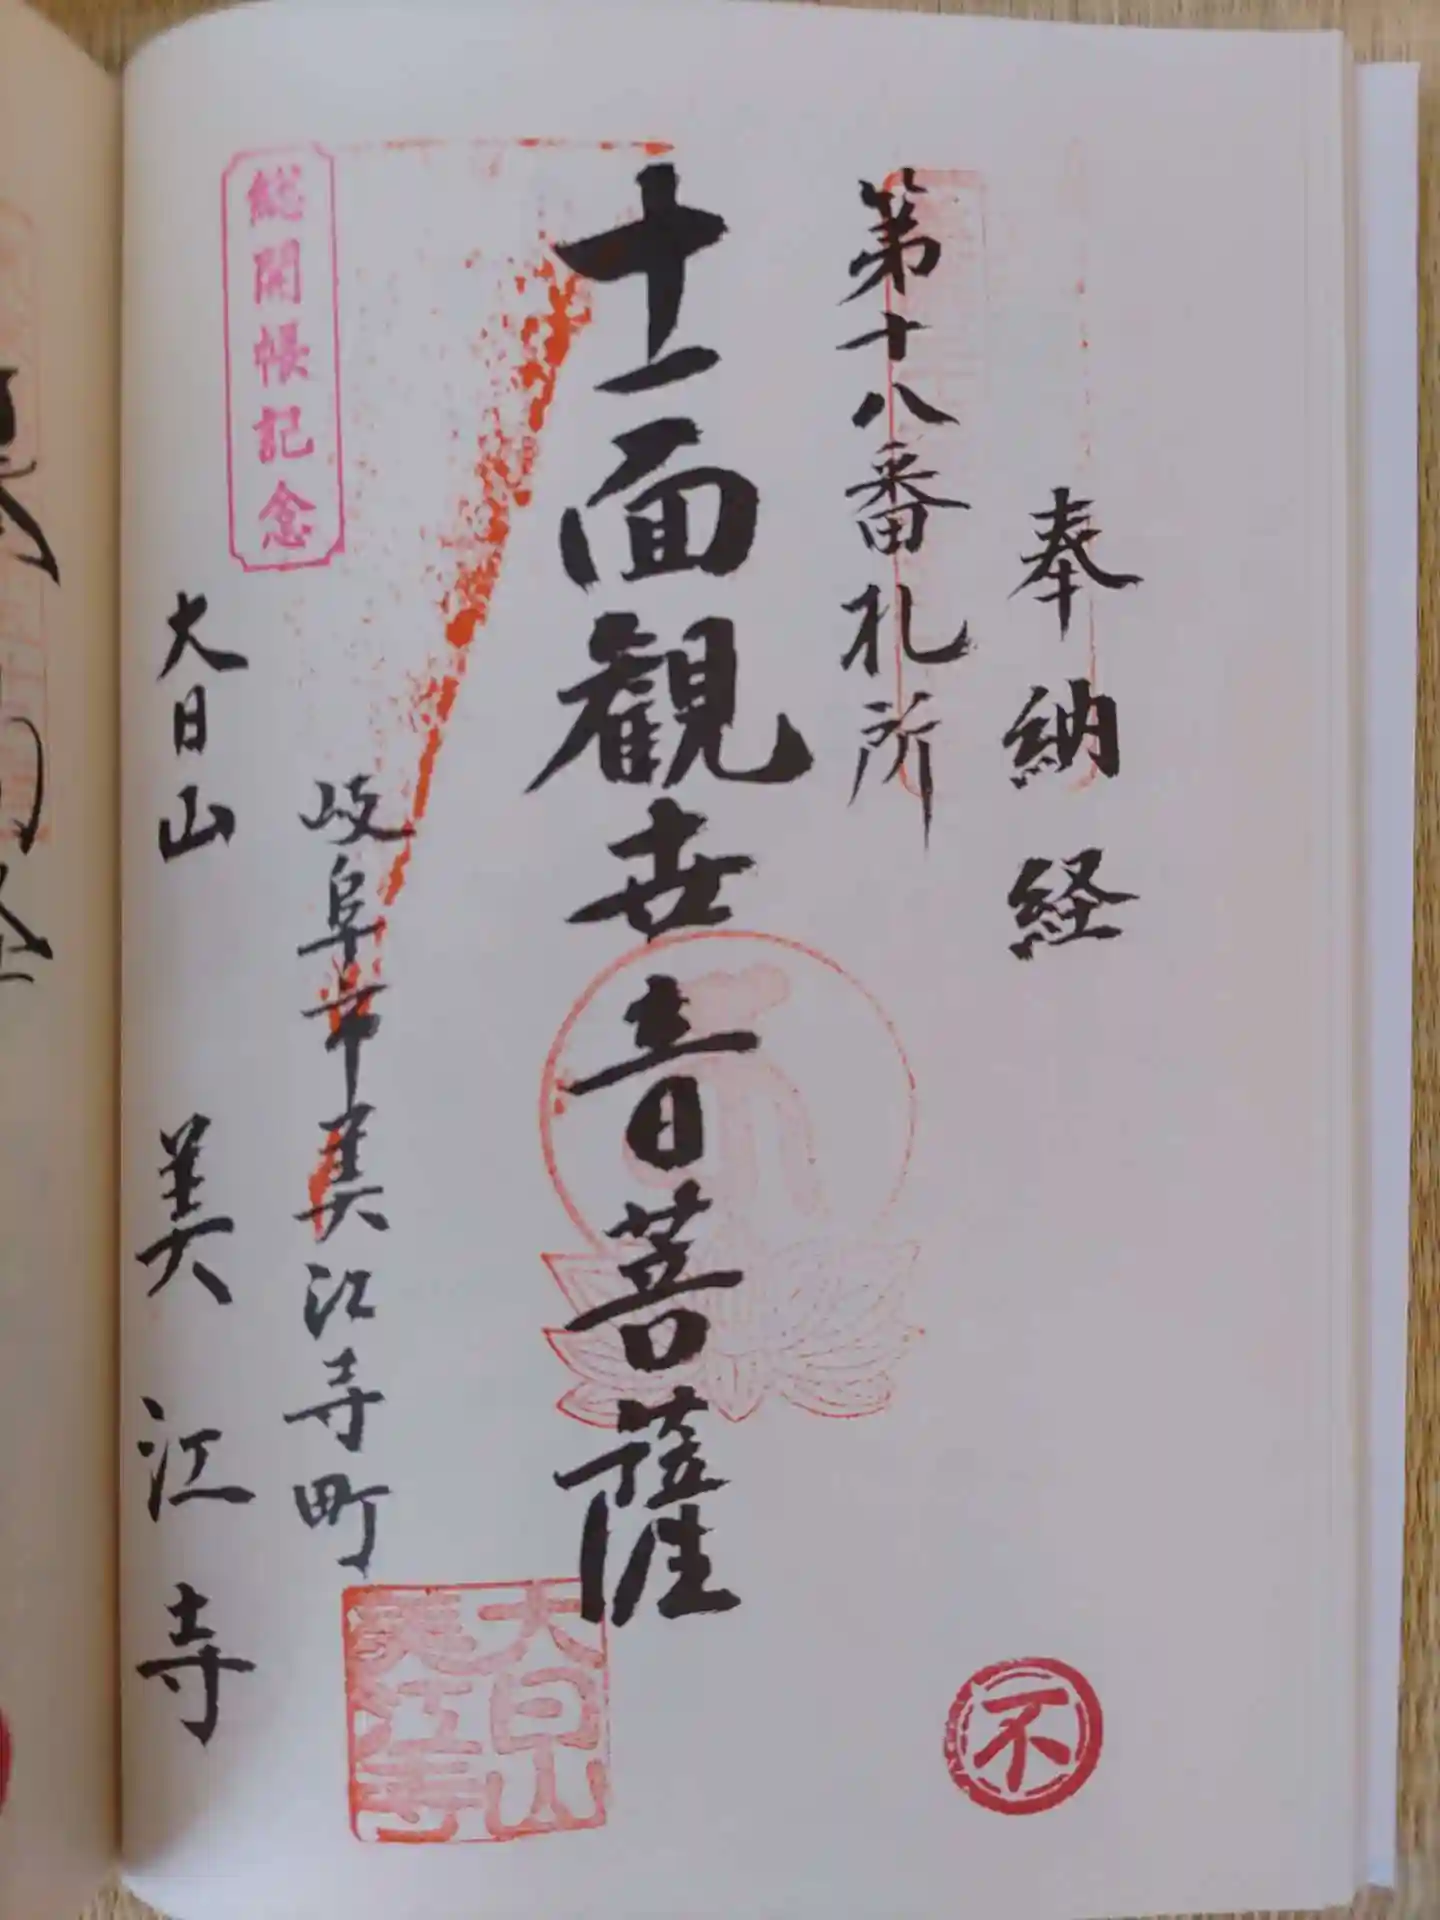 奉納経
第十八番札所
十一面観世音菩薩
総開帳記念
岐阜市美江寺町
大日山 美江寺
大日山
美江寺
不